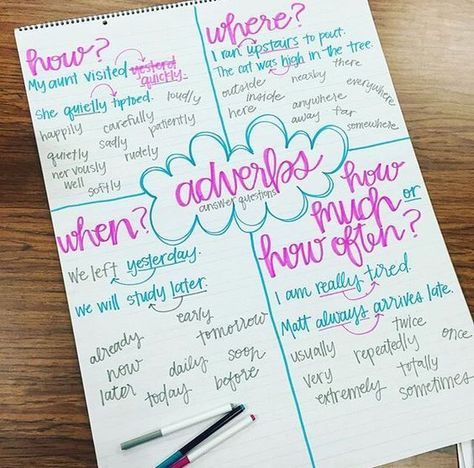 how?
My aunt visited yesterd
quickly.
She quietly tiptoed. loudly
happily carefully patiently
quietly sadly
nervously rudely
well softly
where?
I ran upstairs to pout.
The cat was high in the tree.
outside nearby there
inside everywhere
here anywhere
away far somewhere
adverbs
answer questions
when?
We left yesterday.
We will study later.
early
already tomorrow
now daily soon
later today before
how
much or
how often?
I am really tired.
Matt always arrives late.
usually repeatedly twice once
very totally
extremely sometimes